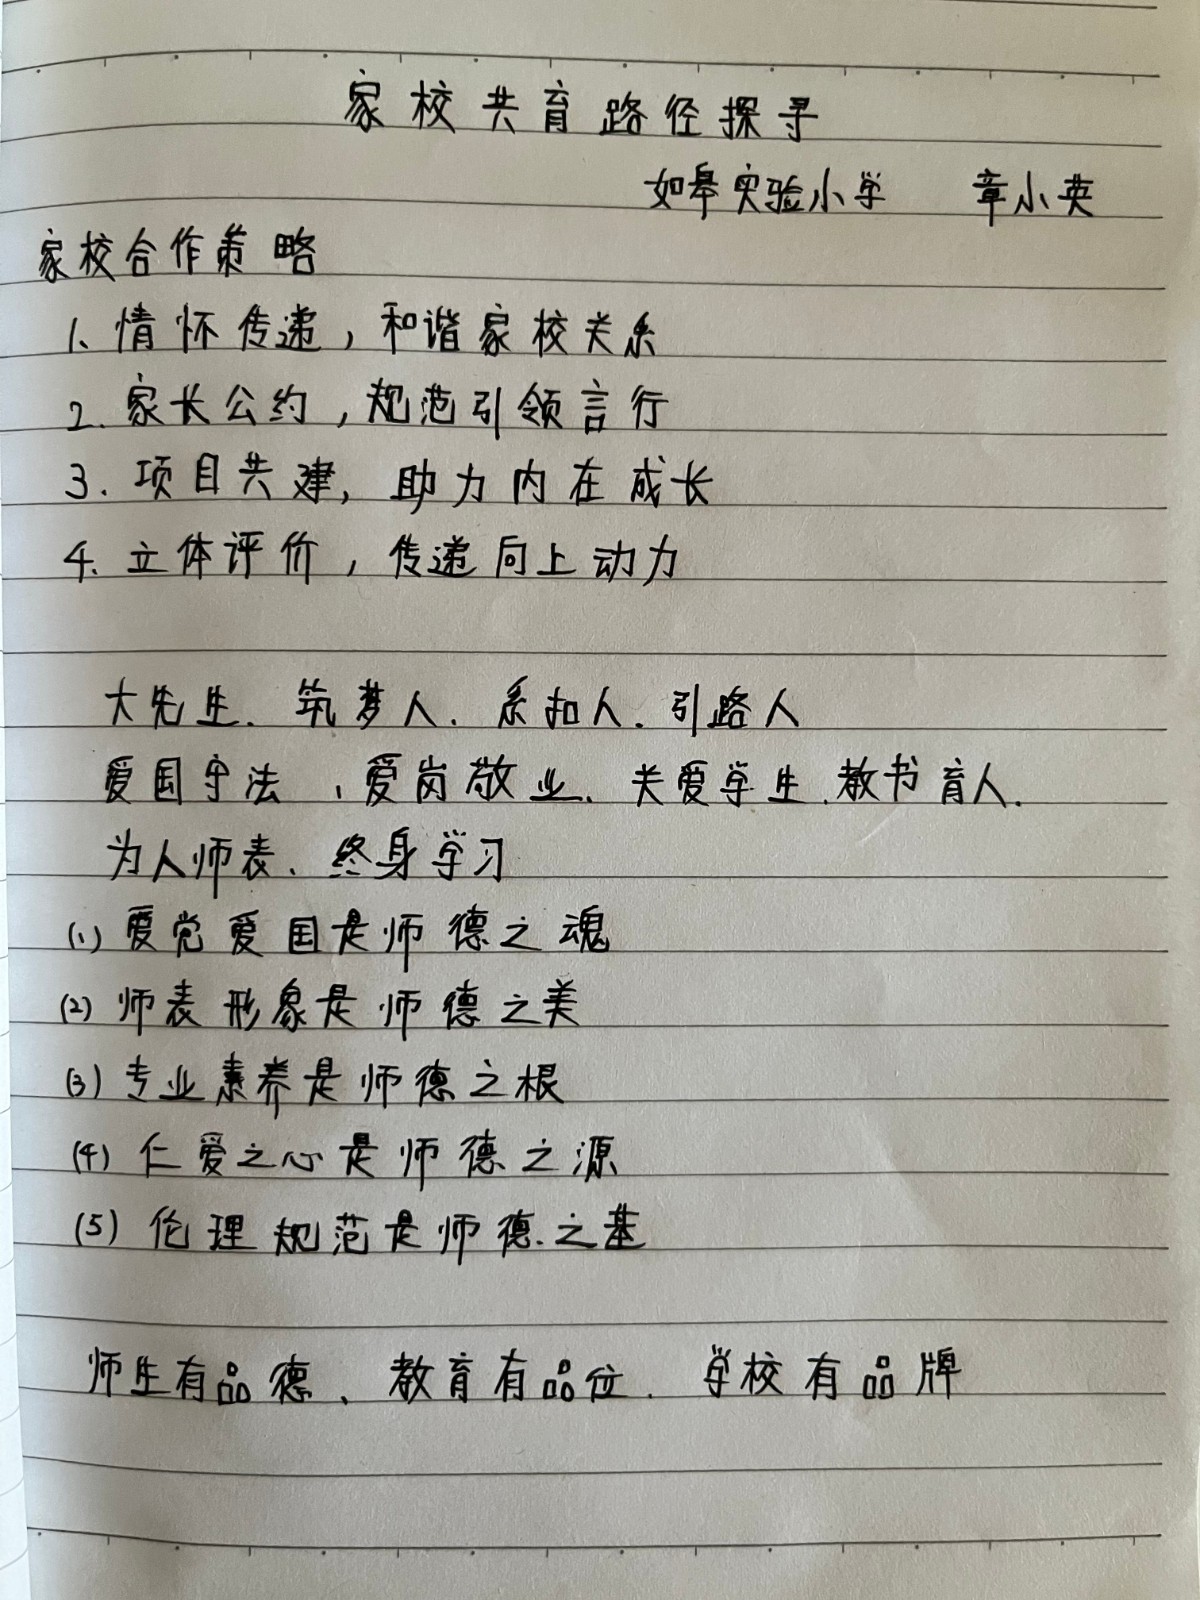 家校共育路径探寻
如皋实验小学 章小英
家校合作策略
1、情怀传递,和谐家校关系
2.家长公约,规范引领言行
3.项目共建,助力内在成长
4、立体评价,传递向上动力
大先生、筑梦人、系扣人、引路人
爱国守法、爱岗敬业、关爱学生、教书育人、
为人师表、终身学习
(1)爱党爱国是师德之魂
(2)师表形象是师德之美
(3)专业素养是师德之根
(4)仁爱之心是师德之源
(5)伦理规范是师德之基
师生有品德、教育有品位、学校有品牌